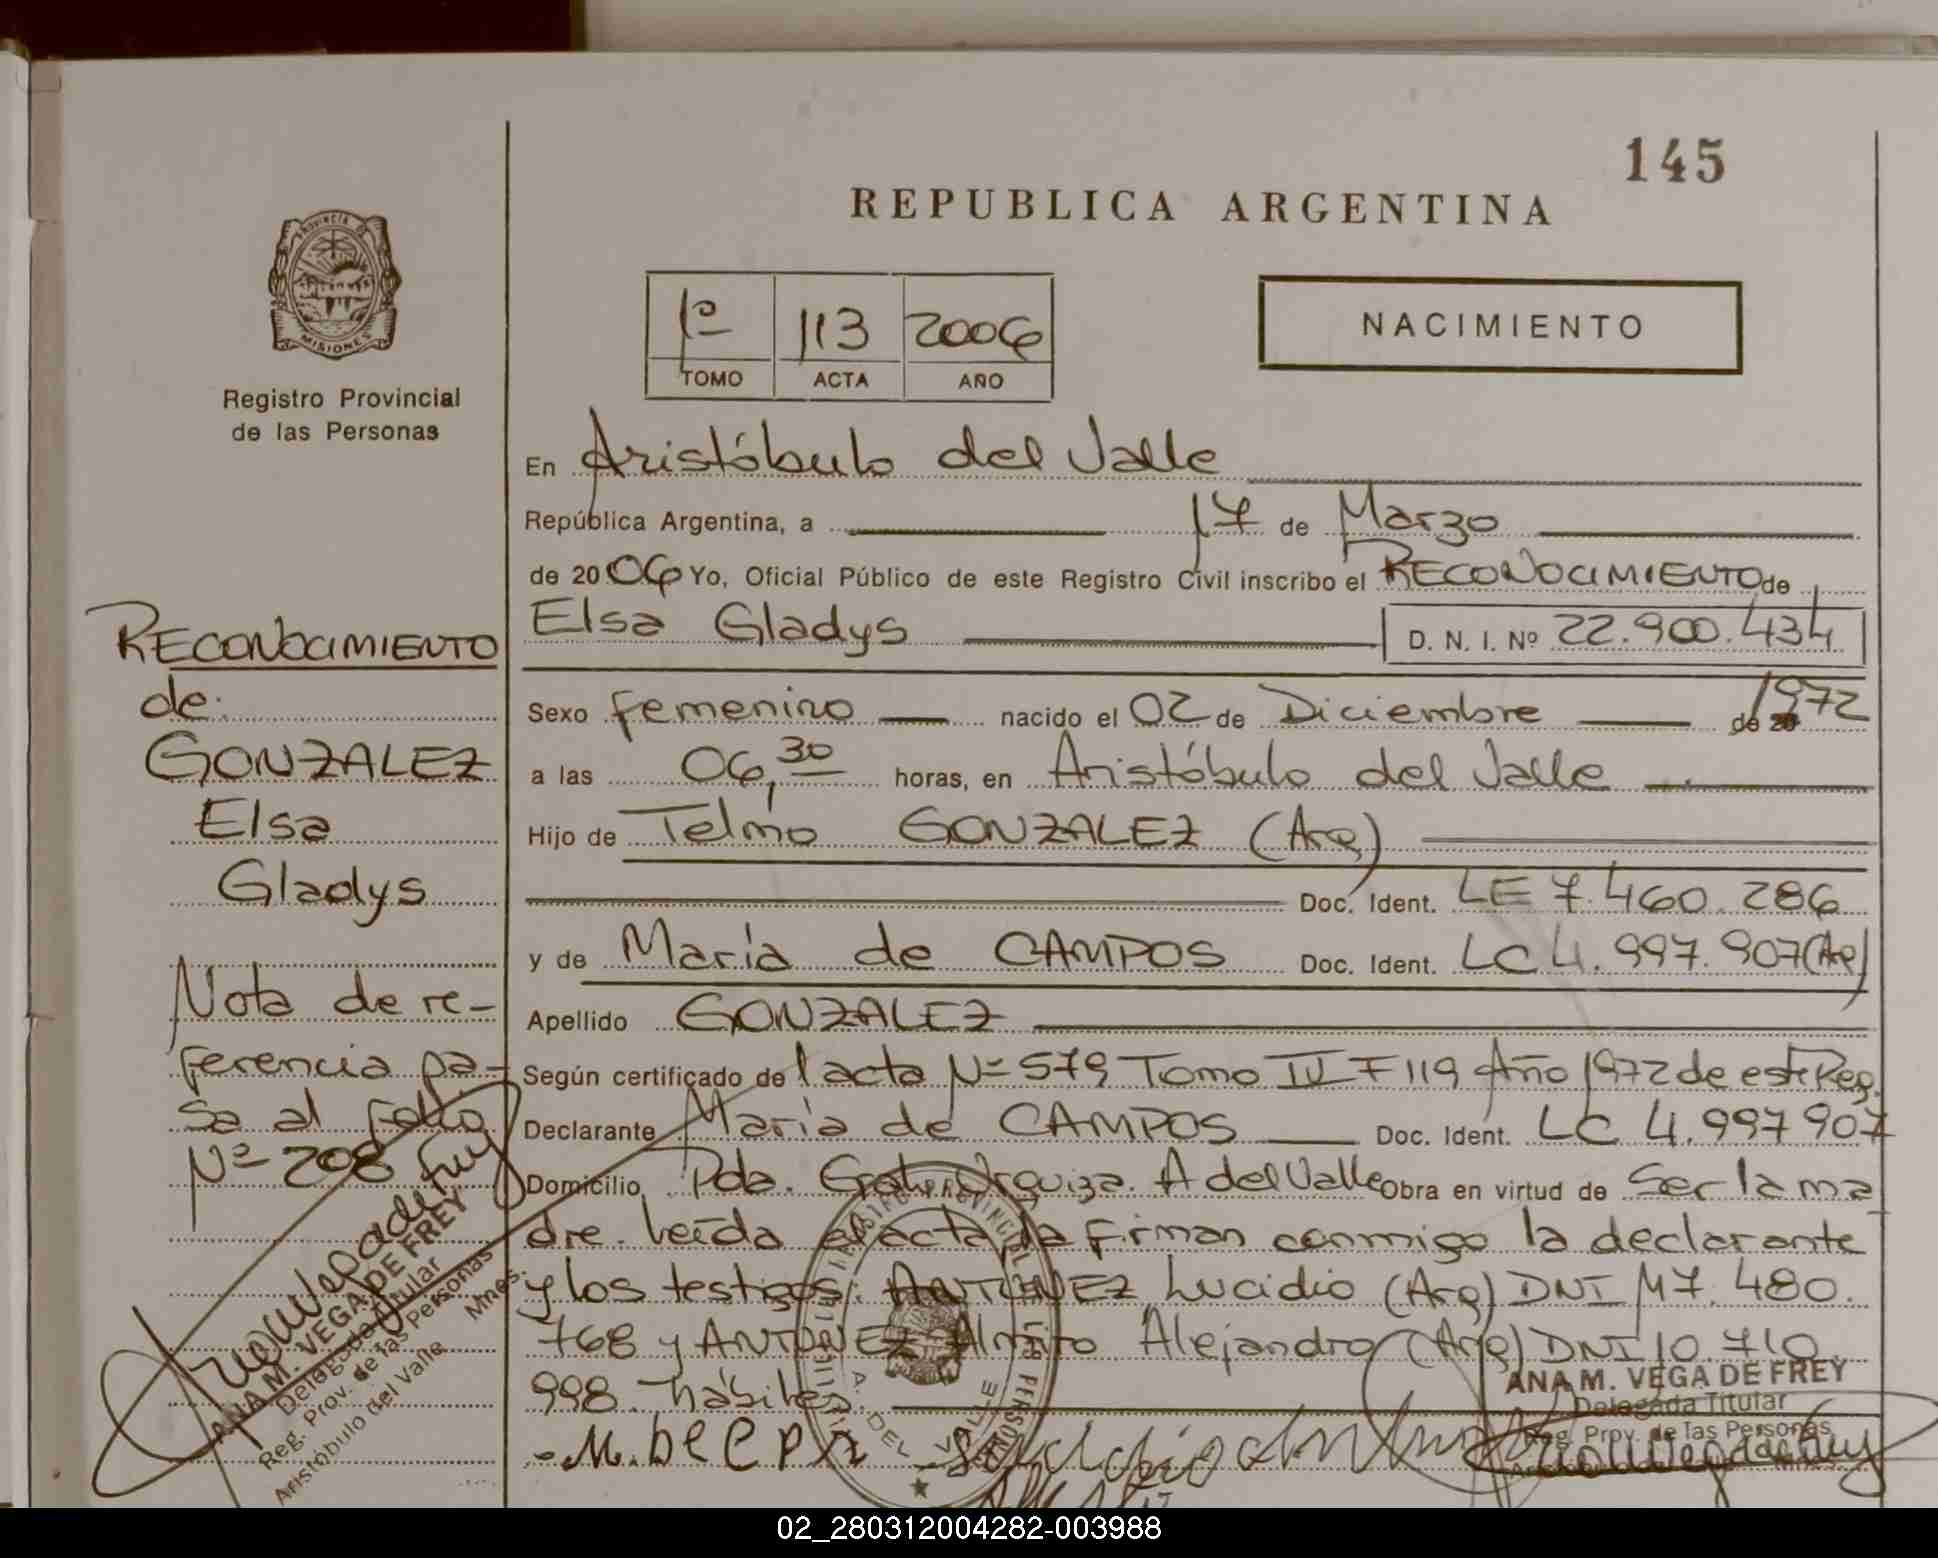 145
REPUBLICA ARGENTINA
PROVINCIA DE
MISIONES
Registro Provincial
de las Personas
1º 113 2006
TOMO ACTA AÑO
NACIMIENTO
En Aristóbulo del Valle
República Argentina, a 17 de Marzo
de 2006 Yo, Oficial Público de este Registro Civil inscribo el RECONOCIMIENTO de
Elsa Gladys D. N. I. Nº 22.900.434
Sexo femenino nacido el 02 de Diciembre de 20 1972
a las 06,30 horas, en Aristóbulo del Valle
Hijo de Telmo GONZALEZ (Arg)
Doc. Ident. LE 7.460.286
y de María de CAMPOS Doc. Ident. LC 4.997.907 (Arg)
Apellido GONZALEZ
Según certificado de l acta Nº 579 Tomo IV F 119 Año 1972 de este Reg.
Declarante María de CAMPOS Doc. Ident. LC 4.997 907
Domicilio Pda. Gral. Urquiza. A del Valle Obra en virtud de Ser la ma
dre. Leída el acta la firman conmigo la declarante
y los testigos: ANTUNEZ Lucidio (Arg) DNI M7.480.
768 y ANTUNEZ Alejandro (Arg) DNI 10.710.
998. hábiles.
ANA M. VEGA DE FREY
Delegada Titular
Reg. Prov. de las Personas
RECONOCIMIENTO
de:
GONZALEZ
Elsa
Gladys
Nota de re-
ferencia pa-
sa al folio
Nº 208
ANA M. VEGA DE FREY
Delegada Titular
Reg. Prov. de las Personas
Aristóbulo del Valle Mnes.
A. DEL VALLE
02_280312004282-003988